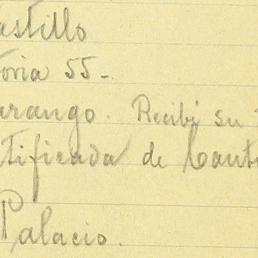 astillo
oria 55-
arango. Recibí su
tificada de Cante
Palacio.